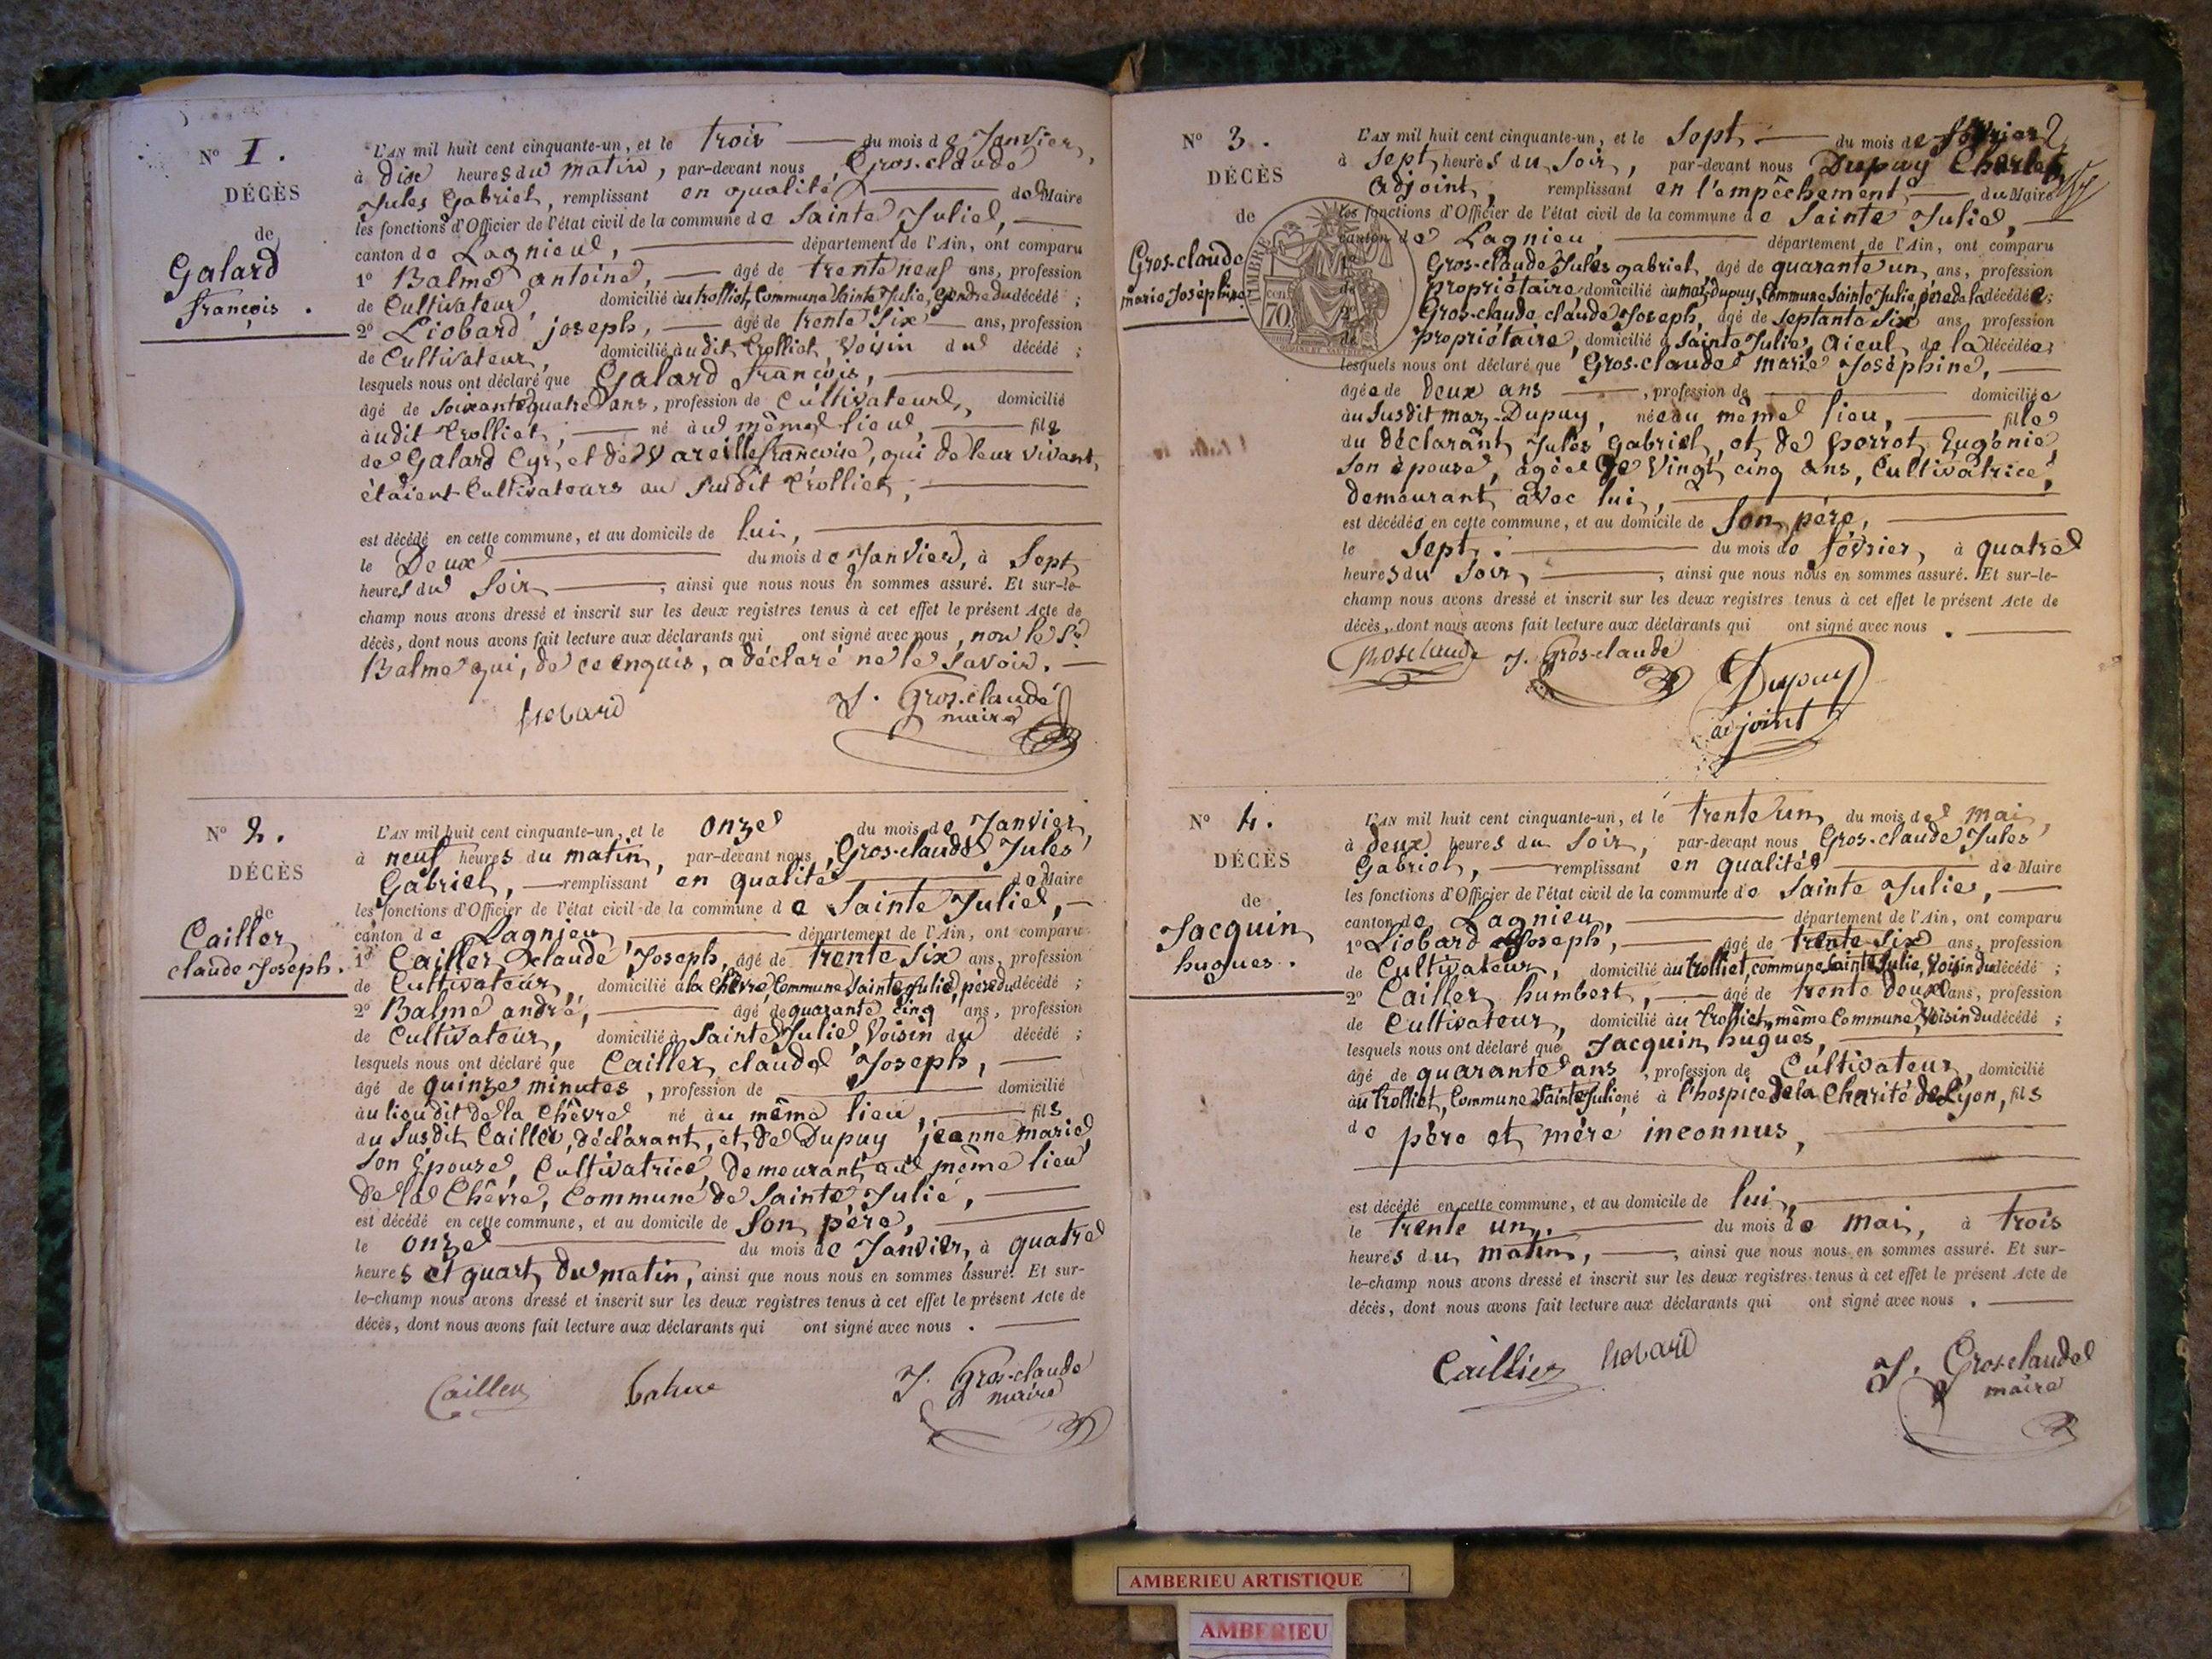 N° 1.
DÉCÈS
de
Galard
françois.
L'AN mil huit cent cinquante-un, et le trois du mois de Janvier,
à dix heures du matin, par-devant nous, Gros-claude
Jules Gabriel, remplissant en qualité de Maire
les fonctions d'Officier de l'état civil de la commune de Sainte Julie,
canton de Lagnieu, département de l'Ain, ont comparu
1° Balme antoine, âgé de trente neuf ans, profession
de Cultivateur, domicilié au trolliet, Commune Sainte Julie, Gendre du décédé ;
2° Liobard joseph, âgé de trente Six ans, profession
de Cultivateur, domicilié audit trolliet, Voisin du décédé ;
lesquels nous ont déclaré que Galard françois,
âgé de soixante quatre ans, profession de Cultivateur, domicilié
audit trolliet, né au même lieu, fils
de Galard Cyr, et de Vareille françoise, qui de leur vivant
étaient Cultivateurs au Susdit trolliet,
est décédé en cette commune, et au domicile de lui,
le Deux du mois de Janvier, à Sept
heures du Soir, ainsi que nous nous en sommes assuré. Et sur-le-
champ nous avons dressé et inscrit sur les deux registres tenus à cet effet le présent Acte de
décès, dont nous avons fait lecture aux déclarants qui ont signé avec nous, non le Sr
Balme qui, de ce enquis, a déclaré ne le Savoir.
liobard J. Gros-claude
maire
N° 2.
DÉCÈS
de
Caillez
claude Joseph.
L'AN mil huit cent cinquante-un, et le onze du mois de Janvier,
à neuf heures du matin, par-devant nous, Gros-claude Jules
Gabriel, remplissant en qualité de Maire
les fonctions d'Officier de l'état civil de la commune de Sainte Julie,
canton de Lagnieu département de l'Ain, ont comparu
1° Caillez claude Joseph, âgé de trente Six ans, profession
de Cultivateur, domicilié à la Chêvre, Commune Sainte Julie, père du décédé ;
2° Balme andré, âgé de quarante cinq ans, profession
de Cultivateur, domicilié à Sainte Julie, Voisin du décédé ;
lesquels nous ont déclaré que Caillez claude Joseph,
âgé de quinze minutes, profession de domicilié
au lieu dit de la Chêvre né au même lieu, fils
du Susdit Caillez, déclarant, et de Dupuy jeanne marie,
Son épouse, Cultivatrice, demeurant au même lieu
de la Chêvre, Commune de Sainte Julie,
est décédé en cette commune, et au domicile de Son père,
le onze du mois de Janvier, à quatre
heures et quart du matin, ainsi que nous nous en sommes assuré. Et sur-
le-champ nous avons dressé et inscrit sur les deux registres tenus à cet effet le présent Acte de
décès, dont nous avons fait lecture aux déclarants qui ont signé avec nous.
Caillez balme J. Gros-claude
maire
N° 3.
DÉCÈS
de
Gros-claude
marie Joséphine.
TIMBRE
70
L'AN mil huit cent cinquante-un, et le Sept du mois de février
à Sept heures du Soir, par-devant nous Dupuy Charles
adjoint, remplissant en l'empêchement du Maire
les fonctions d'Officier de l'état civil de la commune de Sainte Julie,
canton de Lagnieu, département de l'Ain, ont comparu
Gros-claude Jules gabriel, âgé de quarante un ans, profession
de propriétaire domicilié au maz-dupuy, Commune Sainte Julie, père de la décédée ;
Gros-claude claude Joseph, âgé de Septante Six ans, profession
de propriétaire, domicilié à Sainte Julie, aieul de la décédée ;
lesquels nous ont déclaré que Gros-claude marie Joséphine,
âgée de Deux ans, profession de domiciliée
au Susdit maz-Dupuy, née au même lieu, fille
du déclarant Jules Gabriel, et de perrot Eugénie,
Son épouse, âgée de Vingt cinq ans, Cultivatrice,
demeurant avec lui,
est décédée en cette commune, et au domicile de Son père,
le Sept du mois de février, à quatre
heures du Soir, ainsi que nous nous en sommes assuré. Et sur-le-
champ nous avons dressé et inscrit sur les deux registres tenus à cet effet le présent Acte de
décès, dont nous avons fait lecture aux déclarants qui ont signé avec nous.
Grosclaude J. Gros-claude Dupuy
adjoint
N° 4.
DÉCÈS
de
Jacquin
hugues.
L'AN mil huit cent cinquante-un, et le trente un du mois de mai,
à deux heures du Soir, par-devant nous Gros-claude Jules
Gabriel, remplissant en qualité de Maire
les fonctions d'Officier de l'état civil de la commune de Sainte Julie,
canton de Lagnieu, département de l'Ain, ont comparu
1° Liobard Joseph, âgé de trente Six ans, profession
de Cultivateur, domicilié au trolliet, commune Sainte Julie, Voisin du décédé ;
2° Caillez humbert, âgé de trente deux ans, profession
de Cultivateur, domicilié au trolliet, même Commune, Voisin du décédé ;
lesquels nous ont déclaré que Jacquin hugues,
âgé de quarante ans, profession de Cultivateur, domicilié
au trolliet, Commune Sainte Julie né à l'hospice de la Charité de Lyon, fils
de père et mère inconnus,
est décédé en cette commune, et au domicile de lui,
le trente un, du mois de mai, à trois
heures du matin, ainsi que nous nous en sommes assuré. Et sur-
le-champ nous avons dressé et inscrit sur les deux registres tenus à cet effet le présent Acte de
décès, dont nous avons fait lecture aux déclarants qui ont signé avec nous.
Caillez liobard J. Gros-claude
maire
AMBERIEU ARTISTIQUE
AMBERIEU